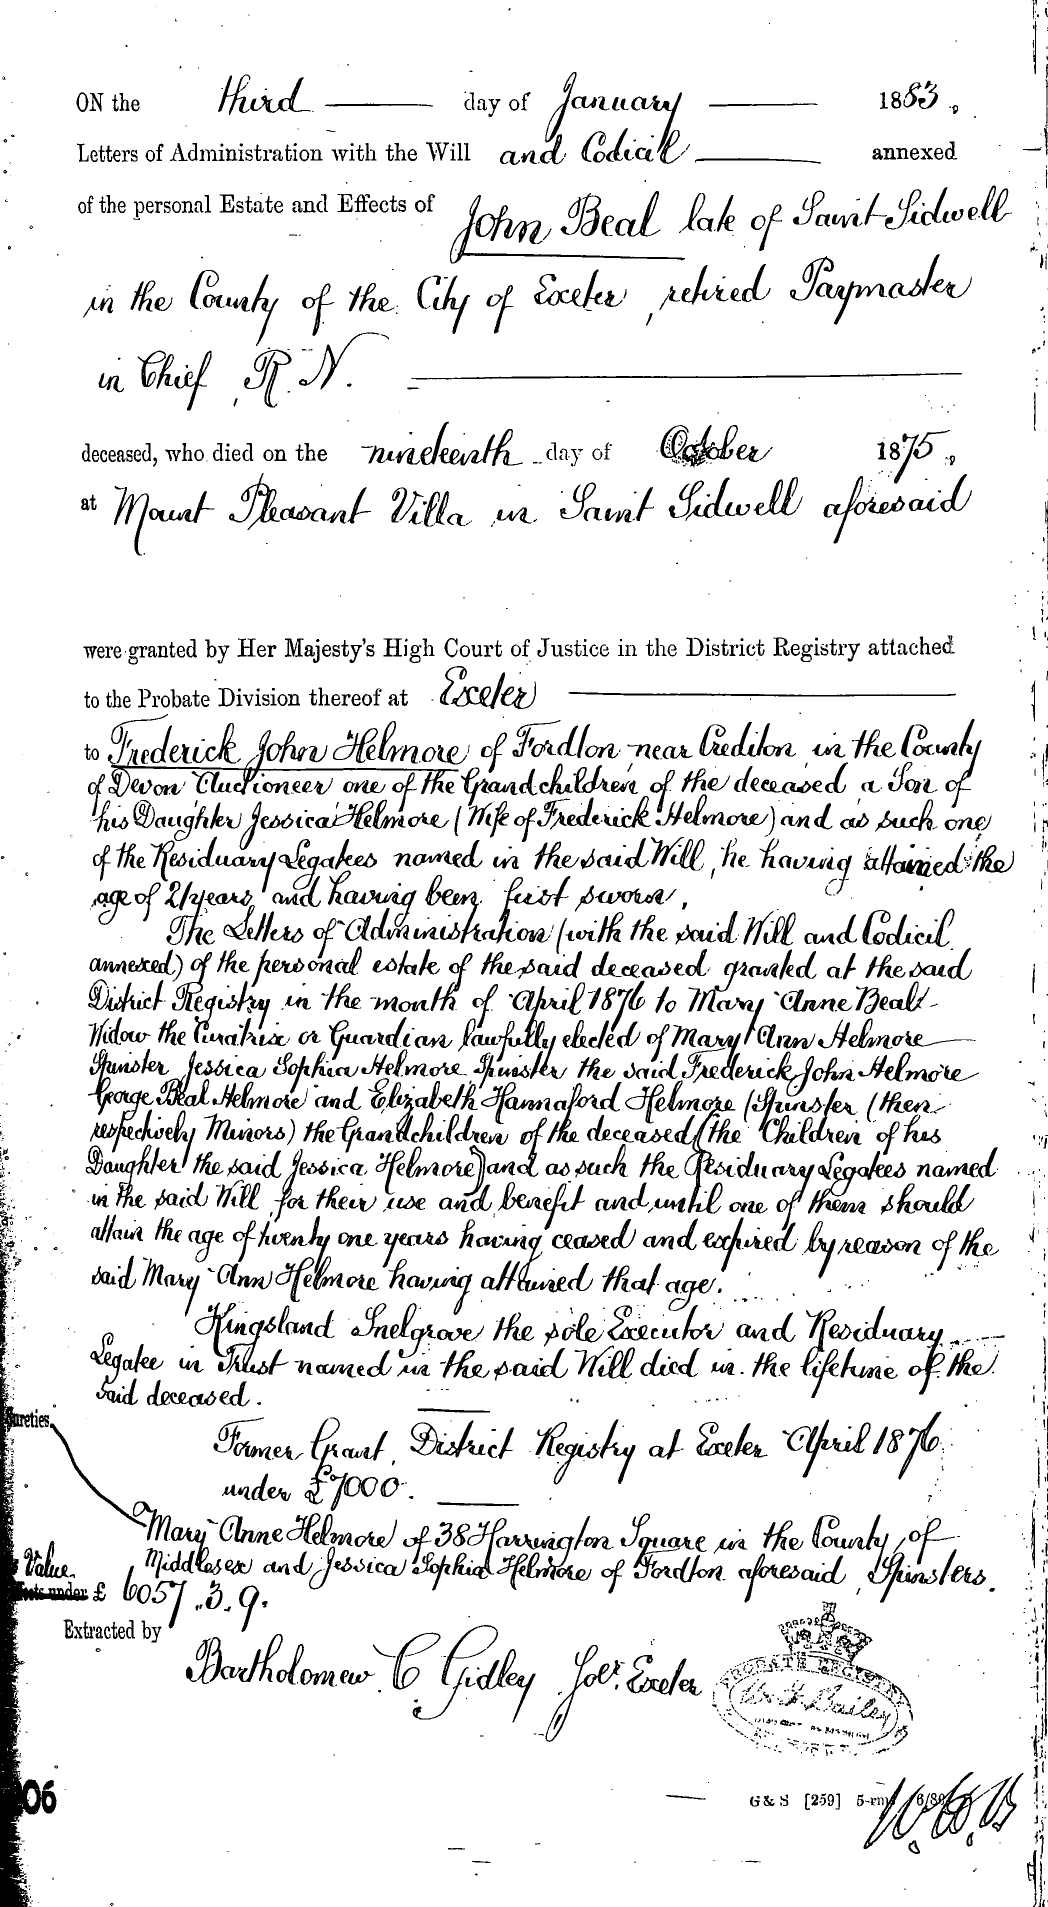 ON the third day of January 1883,
Letters of Administration with the Will and Codicil annexed
of the personal Estate and Effects of John Beal late of Saint Sidwell
in the County of the City of Exeter, retired Paymaster
in Chief, R. N.
deceased, who died on the nineteenth day of October 1875,
at Mount Pleasant Villa in Saint Sidwell aforesaid
were granted by Her Majesty's High Court of Justice in the District Registry attached
to the Probate Division thereof at Exeter
to Frederick John Helmore of Fordton near Crediton in the County
of Devon Auctioneer one of the Grandchildren of the deceased a Son of
his Daughter Jessica Helmore (Wife of Frederick Helmore) and as such one
of the Residuary Legatees named in the said Will, he having attained the
age of 21 years, and having been first sworn.
The Letters of Administration (with the said Will and Codicil
annexed) of the personal estate of the said deceased granted at the said
District Registry in the month of April 1876 to Mary Anne Beal
Widow the Curatrix or Guardian lawfully elected of Mary Ann Helmore
Spinster Jessica Sophia Helmore Spinster the said Frederick John Helmore
George Beal Helmore and Elizabeth Hannaford Helmore (Spinster (then
respectively Minors) the Grandchildren of the deceased (the Children of his
Daughter the said Jessica Helmore) and as such the Residuary Legatees named
in the said Will for their use and benefit and until one of them should
attain the age of twenty one years having ceased and expired by reason of the
said Mary Ann Helmore having attained that age.
Kingsland Snelgrove the sole Executor and Residuary
Legatee in Trust named in the said Will died in the lifetime of the
said deceased.
Sureties
Former Grant, District Registry at Exeter April 1876
under £7000.
Mary Anne Helmore of 38 Harrington Square in the County of
Middlesex and Jessica Sophia Helmore of Fordton aforesaid, Spinsters.
Value
under £ 6057.3.9.
Extracted by
Bartholomew C Gidley Solr. Exeter
PROBATE REGISTRY
Bailey
06
G & S [259] 5-rm